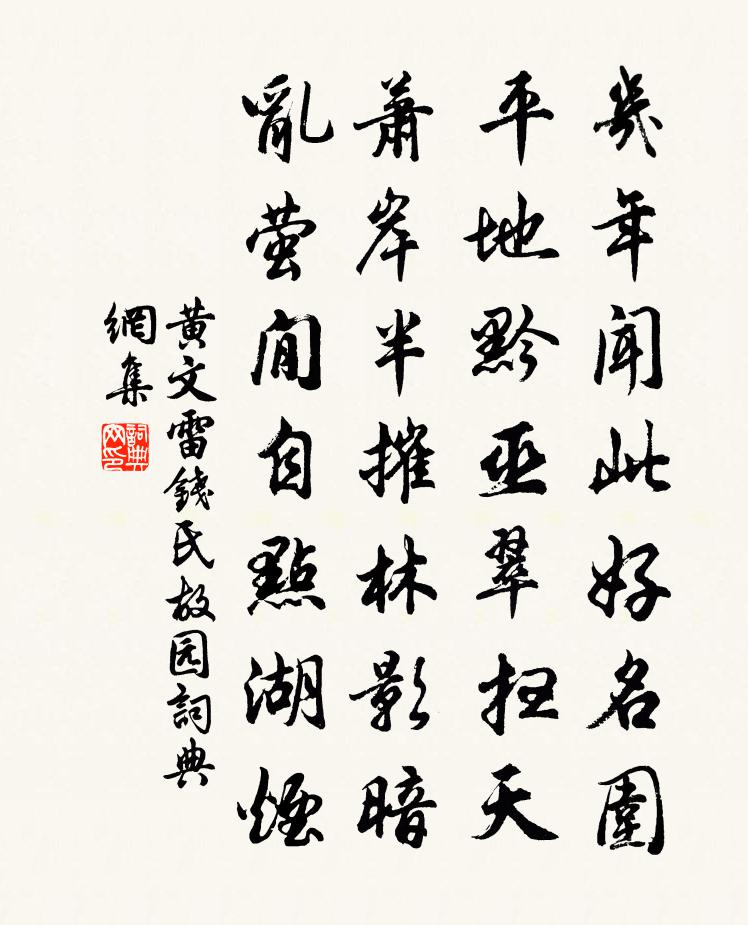 幾年聞此好名園
平地黔巫翠扫天
蕭岸半摧林影暗
亂萤閒自點湖煙
黄文雷錢氏故园詞典
網集
詞典
网印